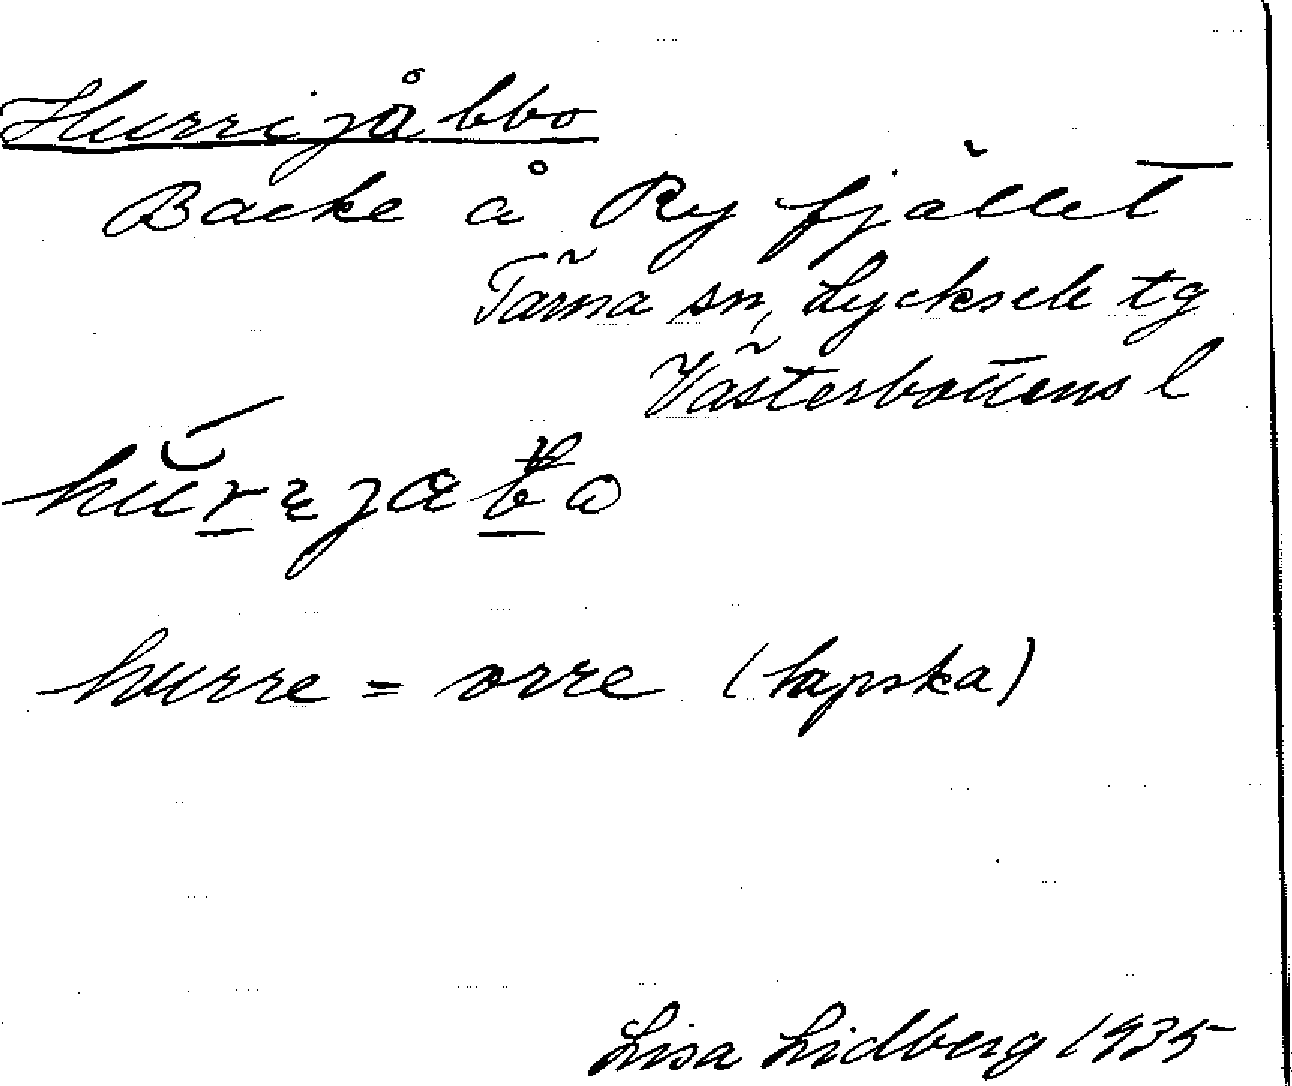 Hurrijåbbo
Backe å Ryfjället
Tärna sn, Lycksele tg
Västerbottens l
hurre = orre (lapska)
Lisa Lidberg 1935